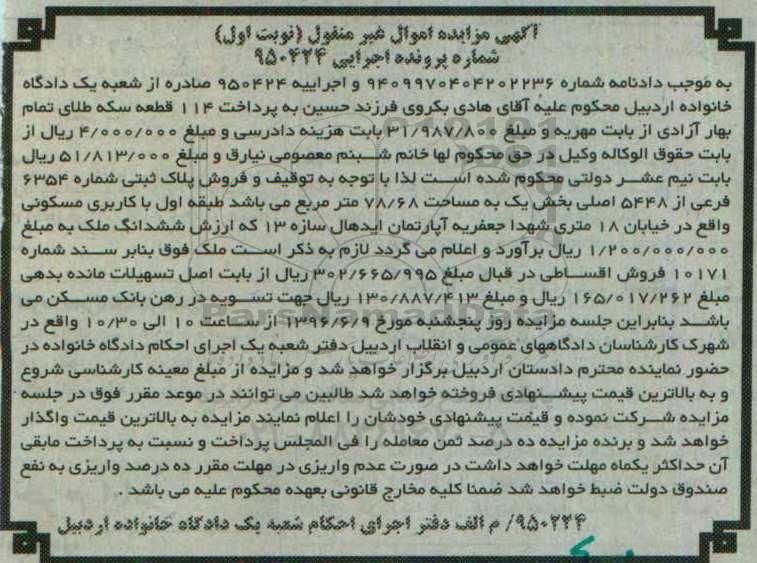 آگهی مزایده اموال غیر منقول (نوبت اول)
شماره پرونده اجرایی ۹۵۰۴۲۴
به موجب دادنامه شماره ۹۴۰۹۹۷۰۴۰۴۲۰۲۲۳۶ و اجراییه ۹۵۰۴۲۴ صادره از شعبه یک دادگاه
خانواده اردبیل محکوم علیه آقای هادی بکروی فرزند حسین به پرداخت ۱۱۴ قطعه سکه طلای تمام
بهار آزادی از بابت مهریه و مبلغ ۳۱/۹۸۷/۸۰۰ بابت هزینه دادرسی و مبلغ ۴/۰۰۰/۰۰۰ ریال از
بابت حقوق الوکاله وکیل در حق محکوم لها خانم شبنم معصومی نیارق و مبلغ ۵۱/۸۱۳/۰۰۰ ریال
بابت نیم عشر دولتی محکوم شده است لذا با توجه به توقیف و فروش پلاک ثبتی شماره ۶۳۵۴
فرعی از ۵۴۴۸ اصلی بخش یک به مساحت ۷۸/۶۸ متر مربع می باشد طبقه اول با کاربری مسکونی
واقع در خیابان ۱۸ متری شهدا جعفریه آپارتمان ایدهال سازه ۱۳ که ارزش ششدانگ ملک به مبلغ
۱/۲۰۰/۰۰۰/۰۰۰ ریال برآورد و اعلام می گردد لازم به ذکر است ملک فوق بنابر سند شماره
۱۰۱۷۱ فروش اقساطی در قبال مبلغ ۳۰۲/۶۶۵/۹۹۵ ریال از بابت اصل تسهیلات مانده بدهی
مبلغ ۱۶۵/۰۱۷/۲۶۲ ریال و مبلغ ۱۳۰/۸۸۷/۴۱۳ ریال جهت تسویه در رهن بانک مسکن می
باشد بنابراین جلسه مزایده روز پنجشنبه مورخ ۱۳۹۶/۶/۹ از ساعت ۱۰ الی ۱۰/۳۰ واقع در
شهرک کارشناسان دادگاههای عمومی و انقلاب اردبیل دفتر شعبه یک اجرای احکام دادگاه خانواده در
حضور نماینده محترم دادستان اردبیل برگزار خواهد شد و مزایده از مبلغ معینه کارشناسی شروع
و به بالاترین قیمت پیشنهادی فروخته خواهد شد طالبین می توانند در موعد مقرر فوق در جلسه
مزایده شرکت نموده و قیمت پیشنهادی خودشان را اعلام نمایند مزایده به بالاترین قیمت واگذار
خواهد شد و برنده مزایده ده درصد ثمن معامله را فی المجلس پرداخت و نسبت به پرداخت مابقی
آن حداکثر یکماه مهلت خواهد داشت در صورت عدم واریزی در مهلت مقرر ده درصد واریزی به نفع
صندوق دولت ضبط خواهد شد ضمنا کلیه مخارج قانونی بعهده محکوم علیه می باشد .
۹۵۰۲۲۴/ م الف دفتر اجرای احکام شعبه یک دادگاه خانواده اردبیل
ParsNamadData